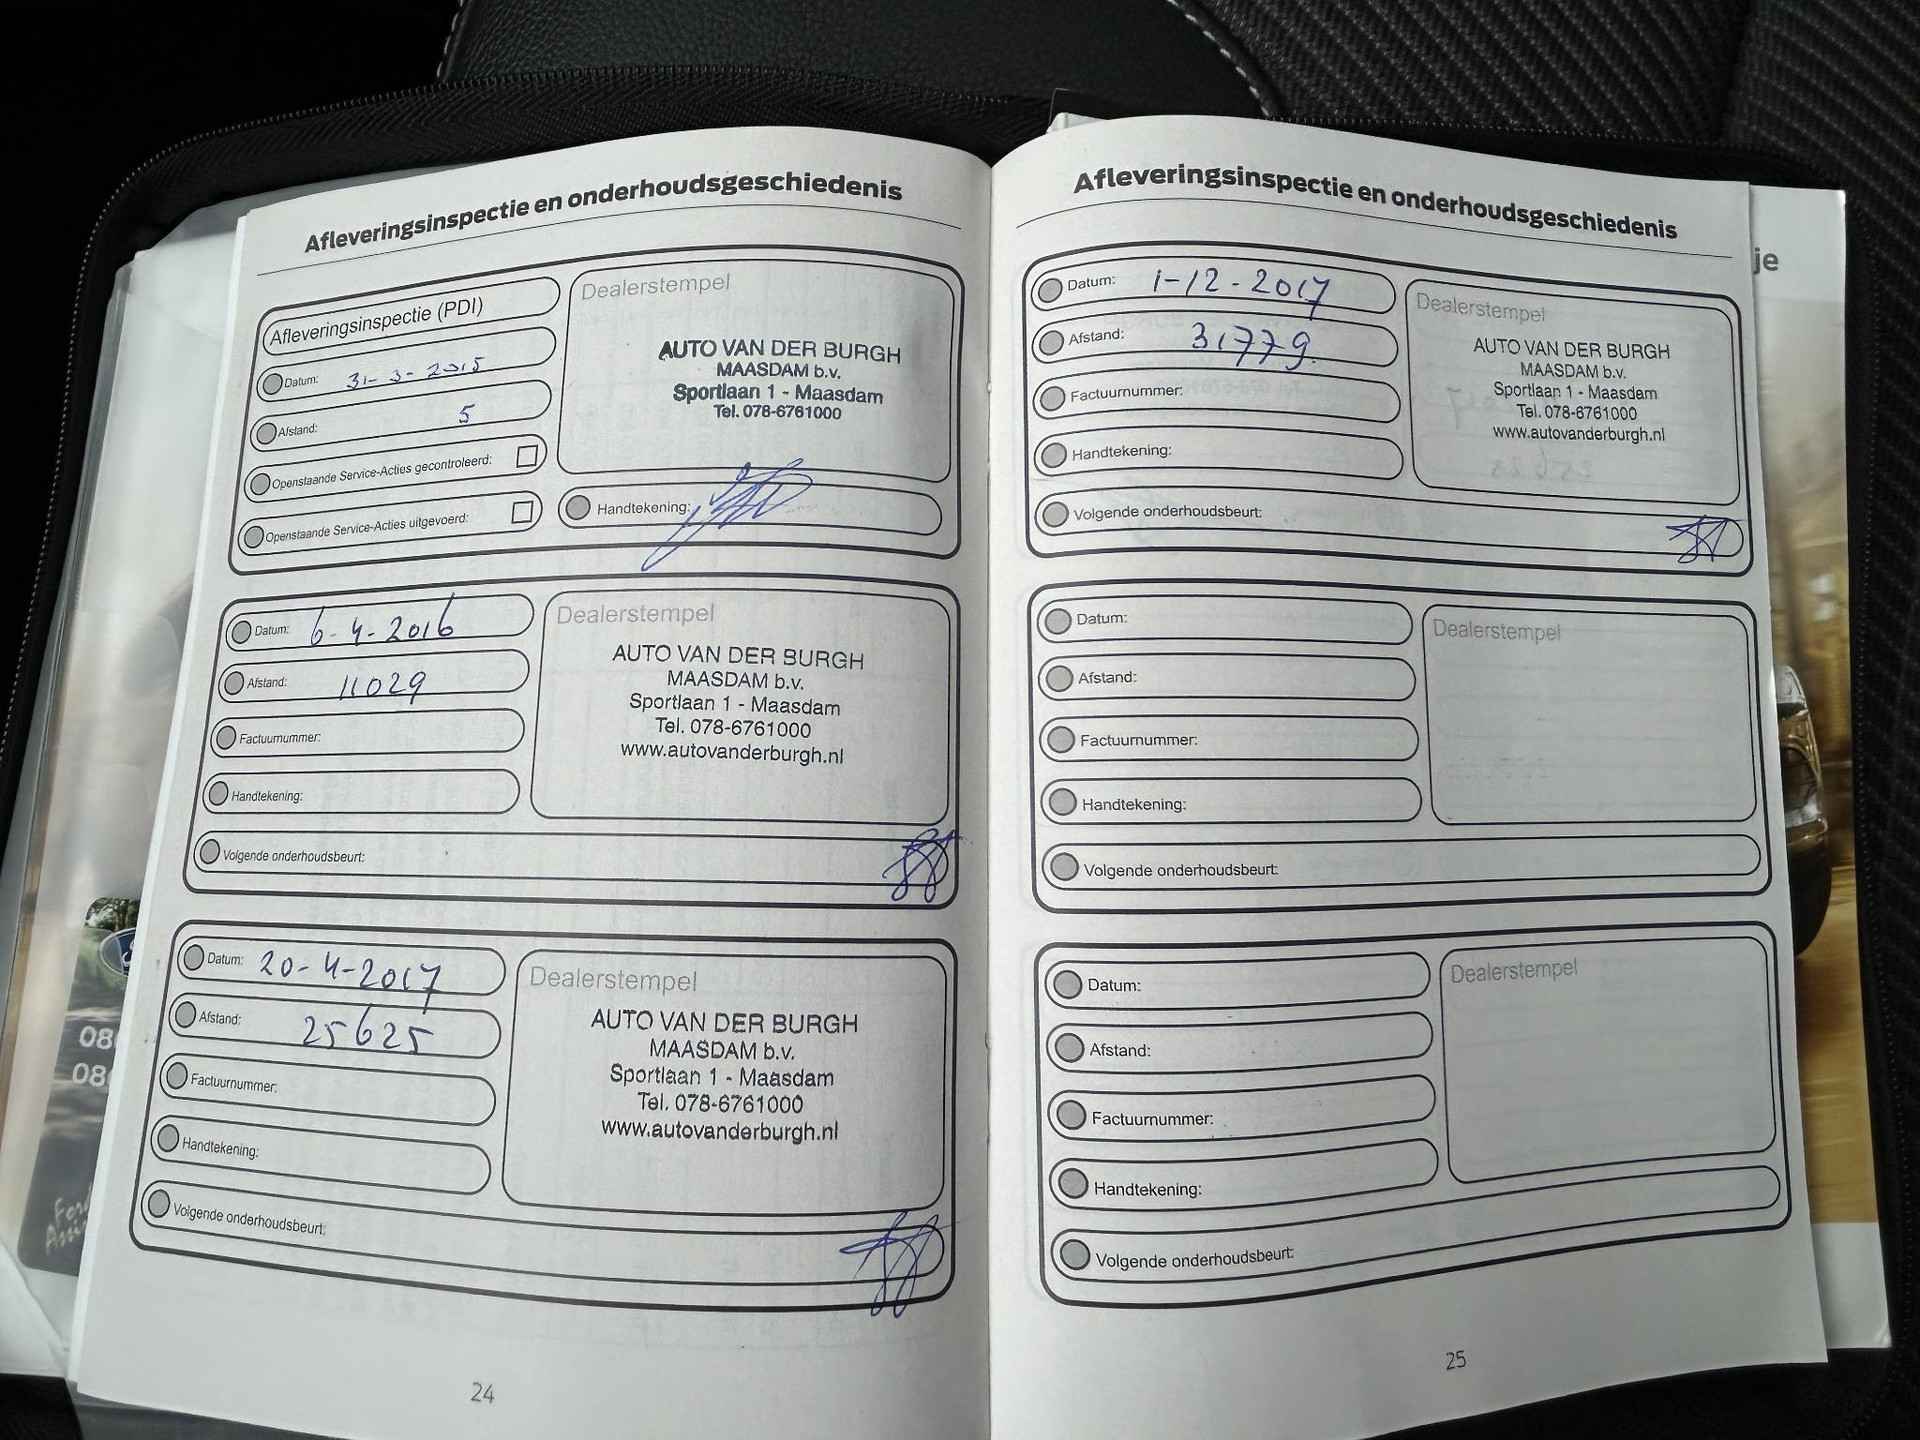 Afleveringsinspectie en onderhoudsgeschiedenis
Afleveringsinspectie (PDI)
Datum: 31-3-2015
Afstand: 5
Openstaande Service-Acties gecontroleerd:
Openstaande Service-Acties uitgevoerd:
Dealerstempel
AUTO VAN DER BURGH
MAASDAM b.v.
Sportlaan 1 - Maasdam
Tel. 078-6761000
Handtekening:
Datum: 6-4-2016
Afstand: 11029
Factuurnummer:
Handtekening:
Volgende onderhoudsbeurt:
Dealerstempel
AUTO VAN DER BURGH
MAASDAM b.v.
Sportlaan 1 - Maasdam
Tel. 078-6761000
www.autovanderburgh.nl
Datum: 20-4-2017
Afstand: 25625
Factuurnummer:
Handtekening:
Volgende onderhoudsbeurt:
Dealerstempel
AUTO VAN DER BURGH
MAASDAM b.v.
Sportlaan 1 - Maasdam
Tel. 078-6761000
www.autovanderburgh.nl
24
Afleveringsinspectie en onderhoudsgeschiedenis
Datum: 1-12-2017
Afstand: 31779
Factuurnummer:
Handtekening:
Volgende onderhoudsbeurt:
Dealerstempel
AUTO VAN DER BURGH
MAASDAM b.v.
Sportlaan 1 - Maasdam
Tel. 078-6761000
www.autovanderburgh.nl
Datum:
Afstand:
Factuurnummer:
Handtekening:
Volgende onderhoudsbeurt:
Dealerstempel
Datum:
Afstand:
Factuurnummer:
Handtekening:
Volgende onderhoudsbeurt:
Dealerstempel
25
je
08
08